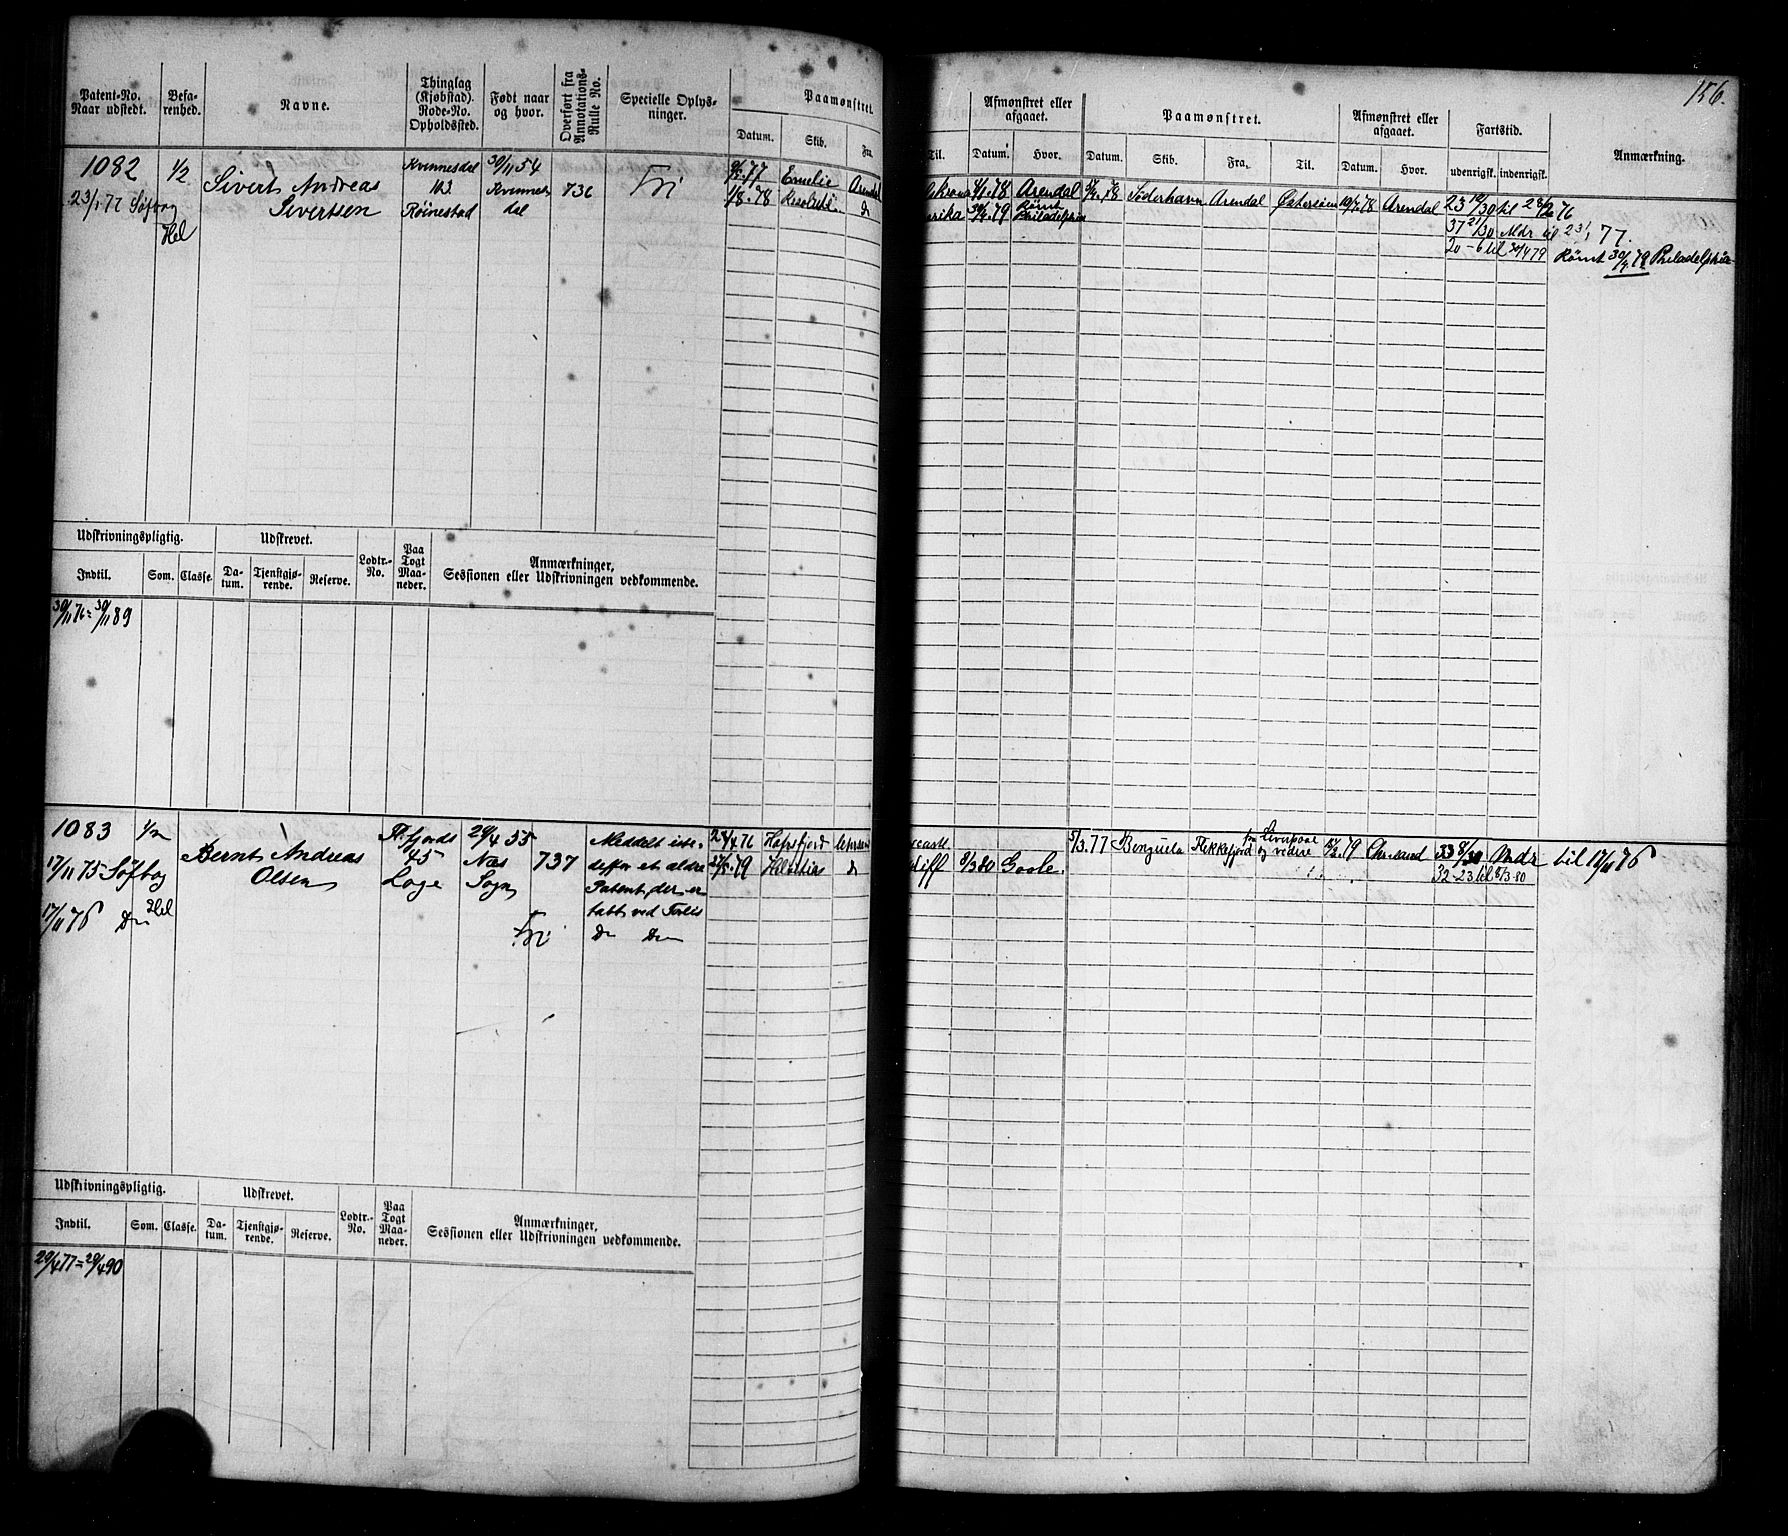 156.
Patent-No. Naar udstedt.
Befarenhed.
Navne.
Thinglag (Kjøbstad). Rode-No. Opholdssted.
Født naar og hvor.
Overført fra Annotations-Rulle No.
Specielle Oplysninger.
Paamønstret.
Datum. Skib. Fra. Til.
Afmønstret eller afgaaet.
Datum. Hvor.
Paamønstret.
Datum. Skib. Fra. Til.
Afmønstret eller afgaaet.
Datum. Hvor.
Fartstid.
udenrigsk. indenrigsk.
Anmærkning.
1082 1/2 Sivert Andreas Sivertsen
23/1 77 Søfbog Hel
Kvinnesdal
103
Røinestad
30/11 54
Kvinnesdal
736
Fri
77 Emelie Arendal
1/8 78
78 Arendal
30/4 79 Rømt Philadelphia
78 Söderhavn Arendal Østersøien 10/7 78 Arendal
23 12/30 til 28/2 76
37 21/30 Mdr til 23/1 77.
20 - 6 til 30/4 79 Rømt 30/4 79 Philadelphia
Udskrivningspligtig. Udskrevet. Lodtr.-No. Paa Togt Maaneder. Anmærkninger, Sessionen eller Udskrivningen vedkommende.
Indtil. Som. Classe. Datum. Tjenstgjørende. Reserve.
30/11 76 = 30/11 89
1083 1/2 Bernt Andreas Olsen
17/11 75 Søfbog
17/11 76 Do Hel
Fl.fjords
45
Loge
29/4 55
Næs Sogn
737
Fri
Meddelt istedeffor et ældre Patent, der er tabt ved Forlis
Do Do
76 Hafrsfjord
79
8/3 80 Goole.
5/3.77 Benguela Flekkefjord Liverpool og videre 79 Chr.sand
33 8/30 Mdr til 17/11 76
32 - 23 til 8/3 80
Udskrivningspligtig. Udskrevet. Lodtr.-No. Paa Togt Maaneder. Anmærkninger, Sessionen eller Udskrivningen vedkommende.
Indtil. Som. Classe. Datum. Tjenstgjørende. Reserve.
29/4 77 = 29/4 90